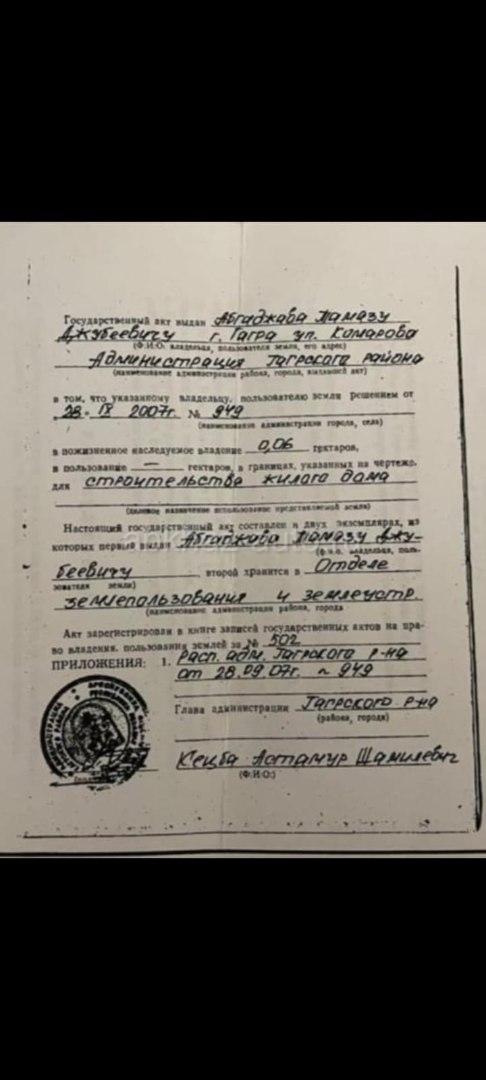 Государственный акт выдан Абгаджава Памазу
Джубеевичу г. Гагра ул. Комарова
(Ф.И.О. владельца, пользователя земли, его адрес)
Администрация Гагрского района
(наименование администрации района, города, выдавшей акт)
в том, что указанному владельцу, пользователю земли решением от
"28" IX 2007г. № 949
(наименование администрации города, села)
в пожизненное наследуемое владение 0,06 гектаров,
в пользование — гектаров, в границах, указанных на чертеже.
для строительства жилага дома
(целевое назначение использование представляемой земли)
Настоящий государственный акт составлен в двух экземплярах, из
которых первый выдан Абгаджава Памазу Джу-
(ф.и.о. владельца, поль-
беевичу второй хранится в Отделе
зователя земли)
землепользования и землеустр.
(наименование администрации района, города
Акт зарегистрирован в книге записей государственных актов на пра-
во владения, пользования землей за № 502
ПРИЛОЖЕНИЯ: 1. Расп. адм. Гагрского р-на
от 28.09.07г. № 949
Глава администрации Гагрского р-на
(района, города)
Кецба Астамур Шамилевич
(Ф.И.О:)